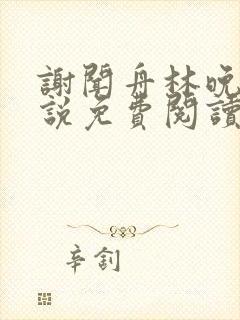 謝聞舟林晚
說免費閱讀
辛劄